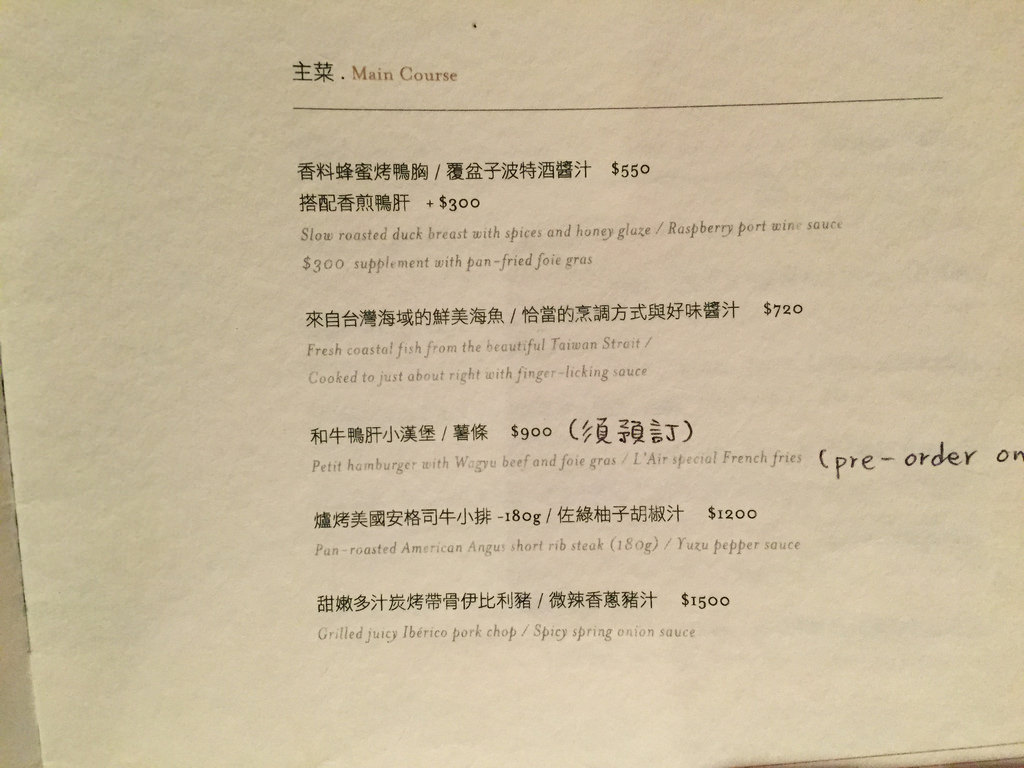 主菜 . Main Course
香料蜂蜜烤鴨胸 / 覆盆子波特酒醬汁 $550
搭配香煎鴨肝 + $300
Slow roasted duck breast with spices and honey glaze / Raspberry port wine sauce
$300 supplement with pan-fried foie gras
來自台灣海域的鮮美海魚 / 恰當的烹調方式與好味醬汁 $720
Fresh coastal fish from the beautiful Taiwan Strait /
Cooked to just about right with finger-licking sauce
和牛鴨肝小漢堡 / 薯條 $900 (須預訂)
Petit hamburger with Wagyu beef and foie gras / L'Air special French fries (pre-order on
爐烤美國安格司牛小排 -180g / 佐綠柚子胡椒汁 $1200
Pan-roasted American Angus short rib steak (180g) / Yuzu pepper sauce
甜嫩多汁炭烤帶骨伊比利豬 / 微辣香蔥豬汁 $1500
Grilled juicy Ibérico pork chop / Spicy spring onion sauce